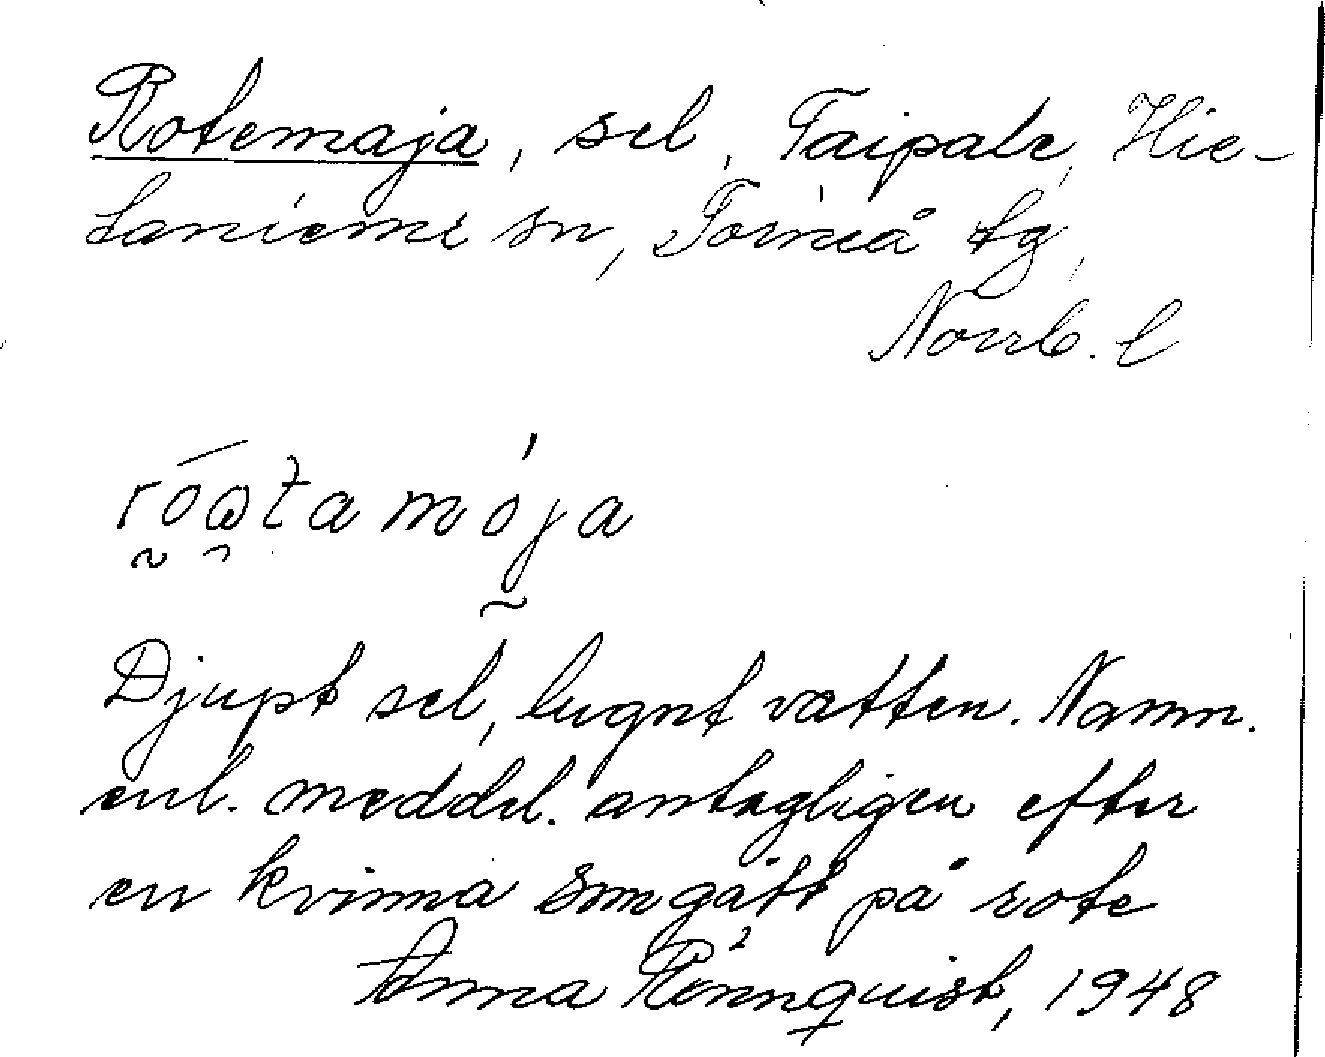 Rotemaja, sel, Taipale, Hie-
taniemi sn, Torneå tg,
Norrb. l
Djupt sel, lugnt vatten. Namn.
enl. meddel. antagligen efter
en kvinna som gått på rote
Anna Rönnquist, 1948